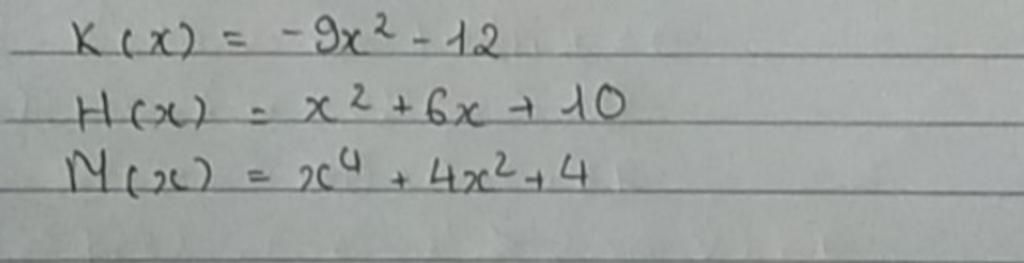 K(x) = -9x² - 12
H(x) = x² + 6x + 10
M(x) = x⁴ + 4x² + 4